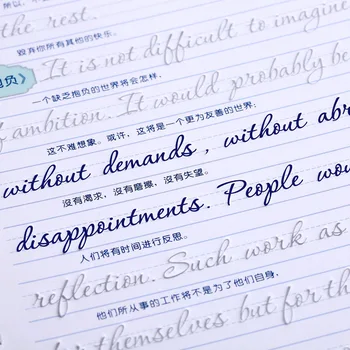 所以，不
the rest.
毁弃你所有其他的快乐。
It is not difficult to imagine
抱负》
一个缺乏抱负的世界将会怎样，
of ambition. It would probably be
这不难想象。或许，这将是一个更为友善的世界：
without demands, without abr
没有渴求，没有磨擦，没有失望。
disappointments. People wou
人们将有时间进行反思。
reflection. Such work as
他们所从事的工作将不是为了他们自身，
for themselves but for th